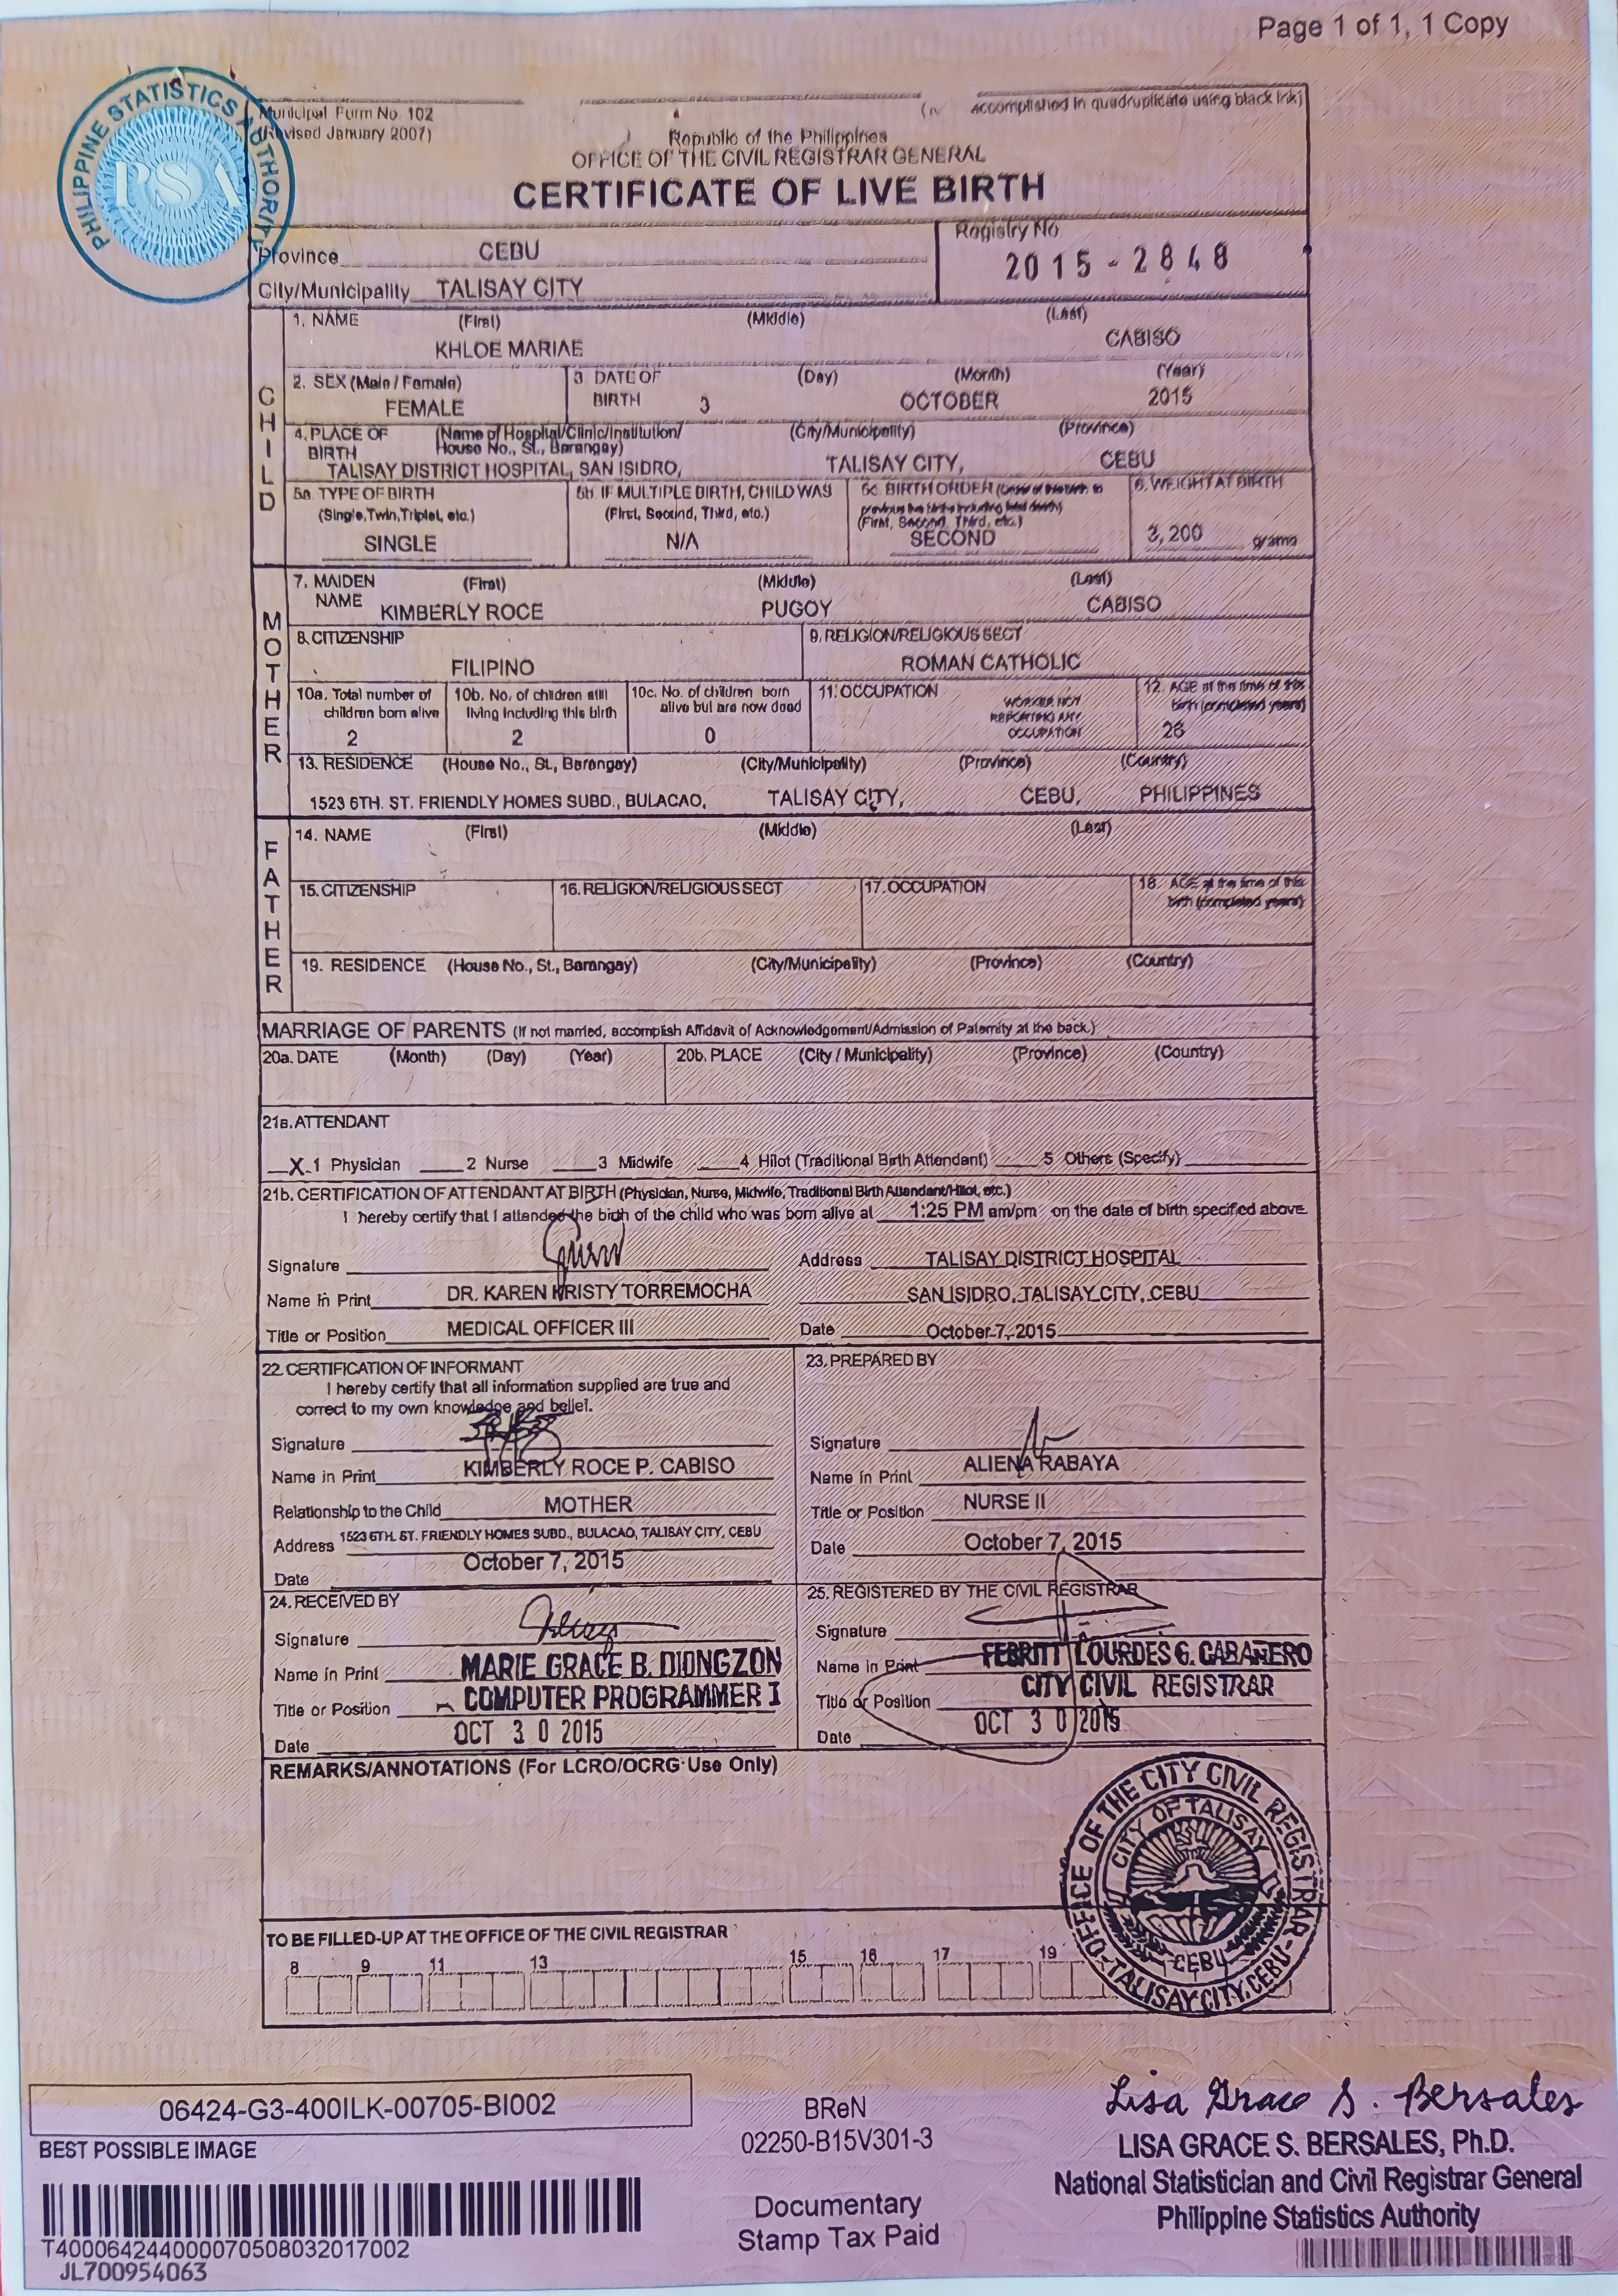 Page 1 of 1, 1 Copy
PHILIPPINE STATISTICS AUTHORITY
PSA
Municipal Form No. 102
(Revised January 2007)
accomplished in quadruplicate using black ink)
Republic of the Philippines
OFFICE OF THE CIVIL REGISTRAR GENERAL
CERTIFICATE OF LIVE BIRTH
Province CEBU
Registry No
2015-2848
City/Municipality TALISAY CITY
CHILD
1. NAME (First) (Middle) (Last)
KHLOE MARIAE CABISO
2. SEX (Male / Female) 3 DATE OF BIRTH (Day) (Month) (Year)
FEMALE 3 OCTOBER 2015
4. PLACE OF BIRTH (Name of Hospital/Clinic/Institution/ House No., St., Barangay) (City/Municipality) (Province)
TALISAY DISTRICT HOSPITAL, SAN ISIDRO, TALISAY CITY, CEBU
5a. TYPE OF BIRTH (Single, Twin, Triplet, etc.)
SINGLE
5b. IF MULTIPLE BIRTH, CHILD WAS (First, Second, Third, etc.)
N/A
5c. BIRTH ORDER
(First, Second, Third, etc.)
SECOND
6. WEIGHT AT BIRTH
3,200 grams
MOTHER
7. MAIDEN NAME (First) (Middle) (Last)
KIMBERLY ROCE PUGOY CABISO
8. CITIZENSHIP
FILIPINO
9. RELIGION/RELIGIOUS SECT
ROMAN CATHOLIC
10a. Total number of children born alive
2
10b. No. of children still living including this birth
2
10c. No. of children born alive but are now dead
0
11. OCCUPATION
WORKER NOT
REPORTING ANY
OCCUPATION
12. AGE at the time of this birth (completed years)
13. RESIDENCE (House No., St., Barangay) (City/Municipality) (Province) (Country)
1523 6TH. ST. FRIENDLY HOMES SUBD., BULACAO, TALISAY CITY, CEBU, PHILIPPINES
FATHER
14. NAME (First) (Middle) (Last)
15. CITIZENSHIP
16. RELIGION/RELIGIOUS SECT
17. OCCUPATION
18. AGE at the time of this birth (completed years)
19. RESIDENCE (House No., St., Barangay) (City/Municipality) (Province) (Country)
MARRIAGE OF PARENTS (If not married, accomplish Affidavit of Acknowledgement/Admission of Paternity at the back.)
20a. DATE (Month) (Day) (Year)
20b. PLACE (City / Municipality) (Province) (Country)
21a. ATTENDANT
X 1 Physician 2 Nurse 3 Midwife 4 Hilot (Traditional Birth Attendant) 5 Others (Specify)
21b. CERTIFICATION OF ATTENDANT AT BIRTH (Physician, Nurse, Midwife, Traditional Birth Attendant/Hilot, etc.)
I hereby certify that I attended the birth of the child who was born alive at 1:25 PM am/pm on the date of birth specified above.
Signature
Address TALISAY DISTRICT HOSPITAL
Name in Print DR. KAREN KRISTY TORREMOCHA
SAN ISIDRO, TALISAY CITY, CEBU
Title or Position MEDICAL OFFICER III
Date October 7, 2015
22. CERTIFICATION OF INFORMANT
I hereby certify that all information supplied are true and
correct to my own knowledge and belief.
Signature
Name in Print KIMBERLY ROCE P. CABISO
Relationship to the Child MOTHER
Address 1523 6TH. ST. FRIENDLY HOMES SUBD., BULACAO, TALISAY CITY, CEBU
Date October 7, 2015
23. PREPARED BY
Signature
Name in Print ALIENA RABAYA
Title or Position NURSE II
Date October 7, 2015
24. RECEIVED BY
Signature
Name in Print MARIE GRACE B. DIONGZON
Title or Position COMPUTER PROGRAMMER I
Date OCT 30 2015
25. REGISTERED BY THE CIVIL REGISTRAR
Signature
Name in Print FEBRITT LOURDES G. CABAÑERO
Title or Position CITY CIVIL REGISTRAR
Date OCT 30 2015
REMARKS/ANNOTATIONS (For LCRO/OCRG Use Only)
OFFICE OF THE CITY CIVIL REGISTRAR
TALISAY CITY, CEBU
CITY OF TALISAY
CEBU
TO BE FILLED-UP AT THE OFFICE OF THE CIVIL REGISTRAR
8 9 11 13 15 16 17 19
06424-G3-400ILK-00705-BI002
BEST POSSIBLE IMAGE
T400064244000070508032017002
JL700954063
BReN
02250-B15V301-3
Documentary
Stamp Tax Paid
Lisa Grace S. Bersales
LISA GRACE S. BERSALES, Ph.D.
National Statistician and Civil Registrar General
Philippine Statistics Authority